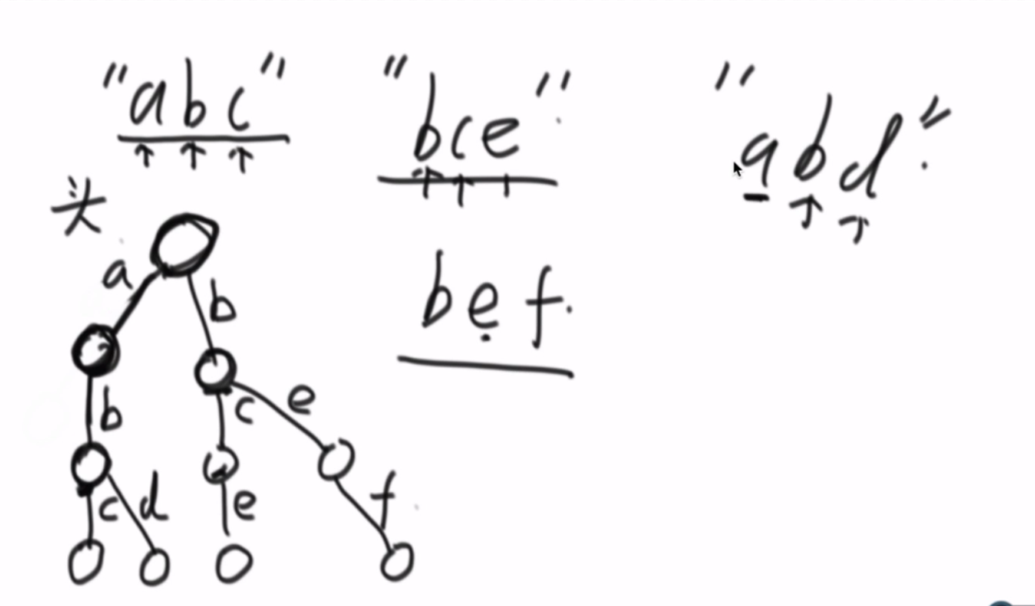 "abc" "bce" "abd"
头
bef
a b
b c e
c d e f